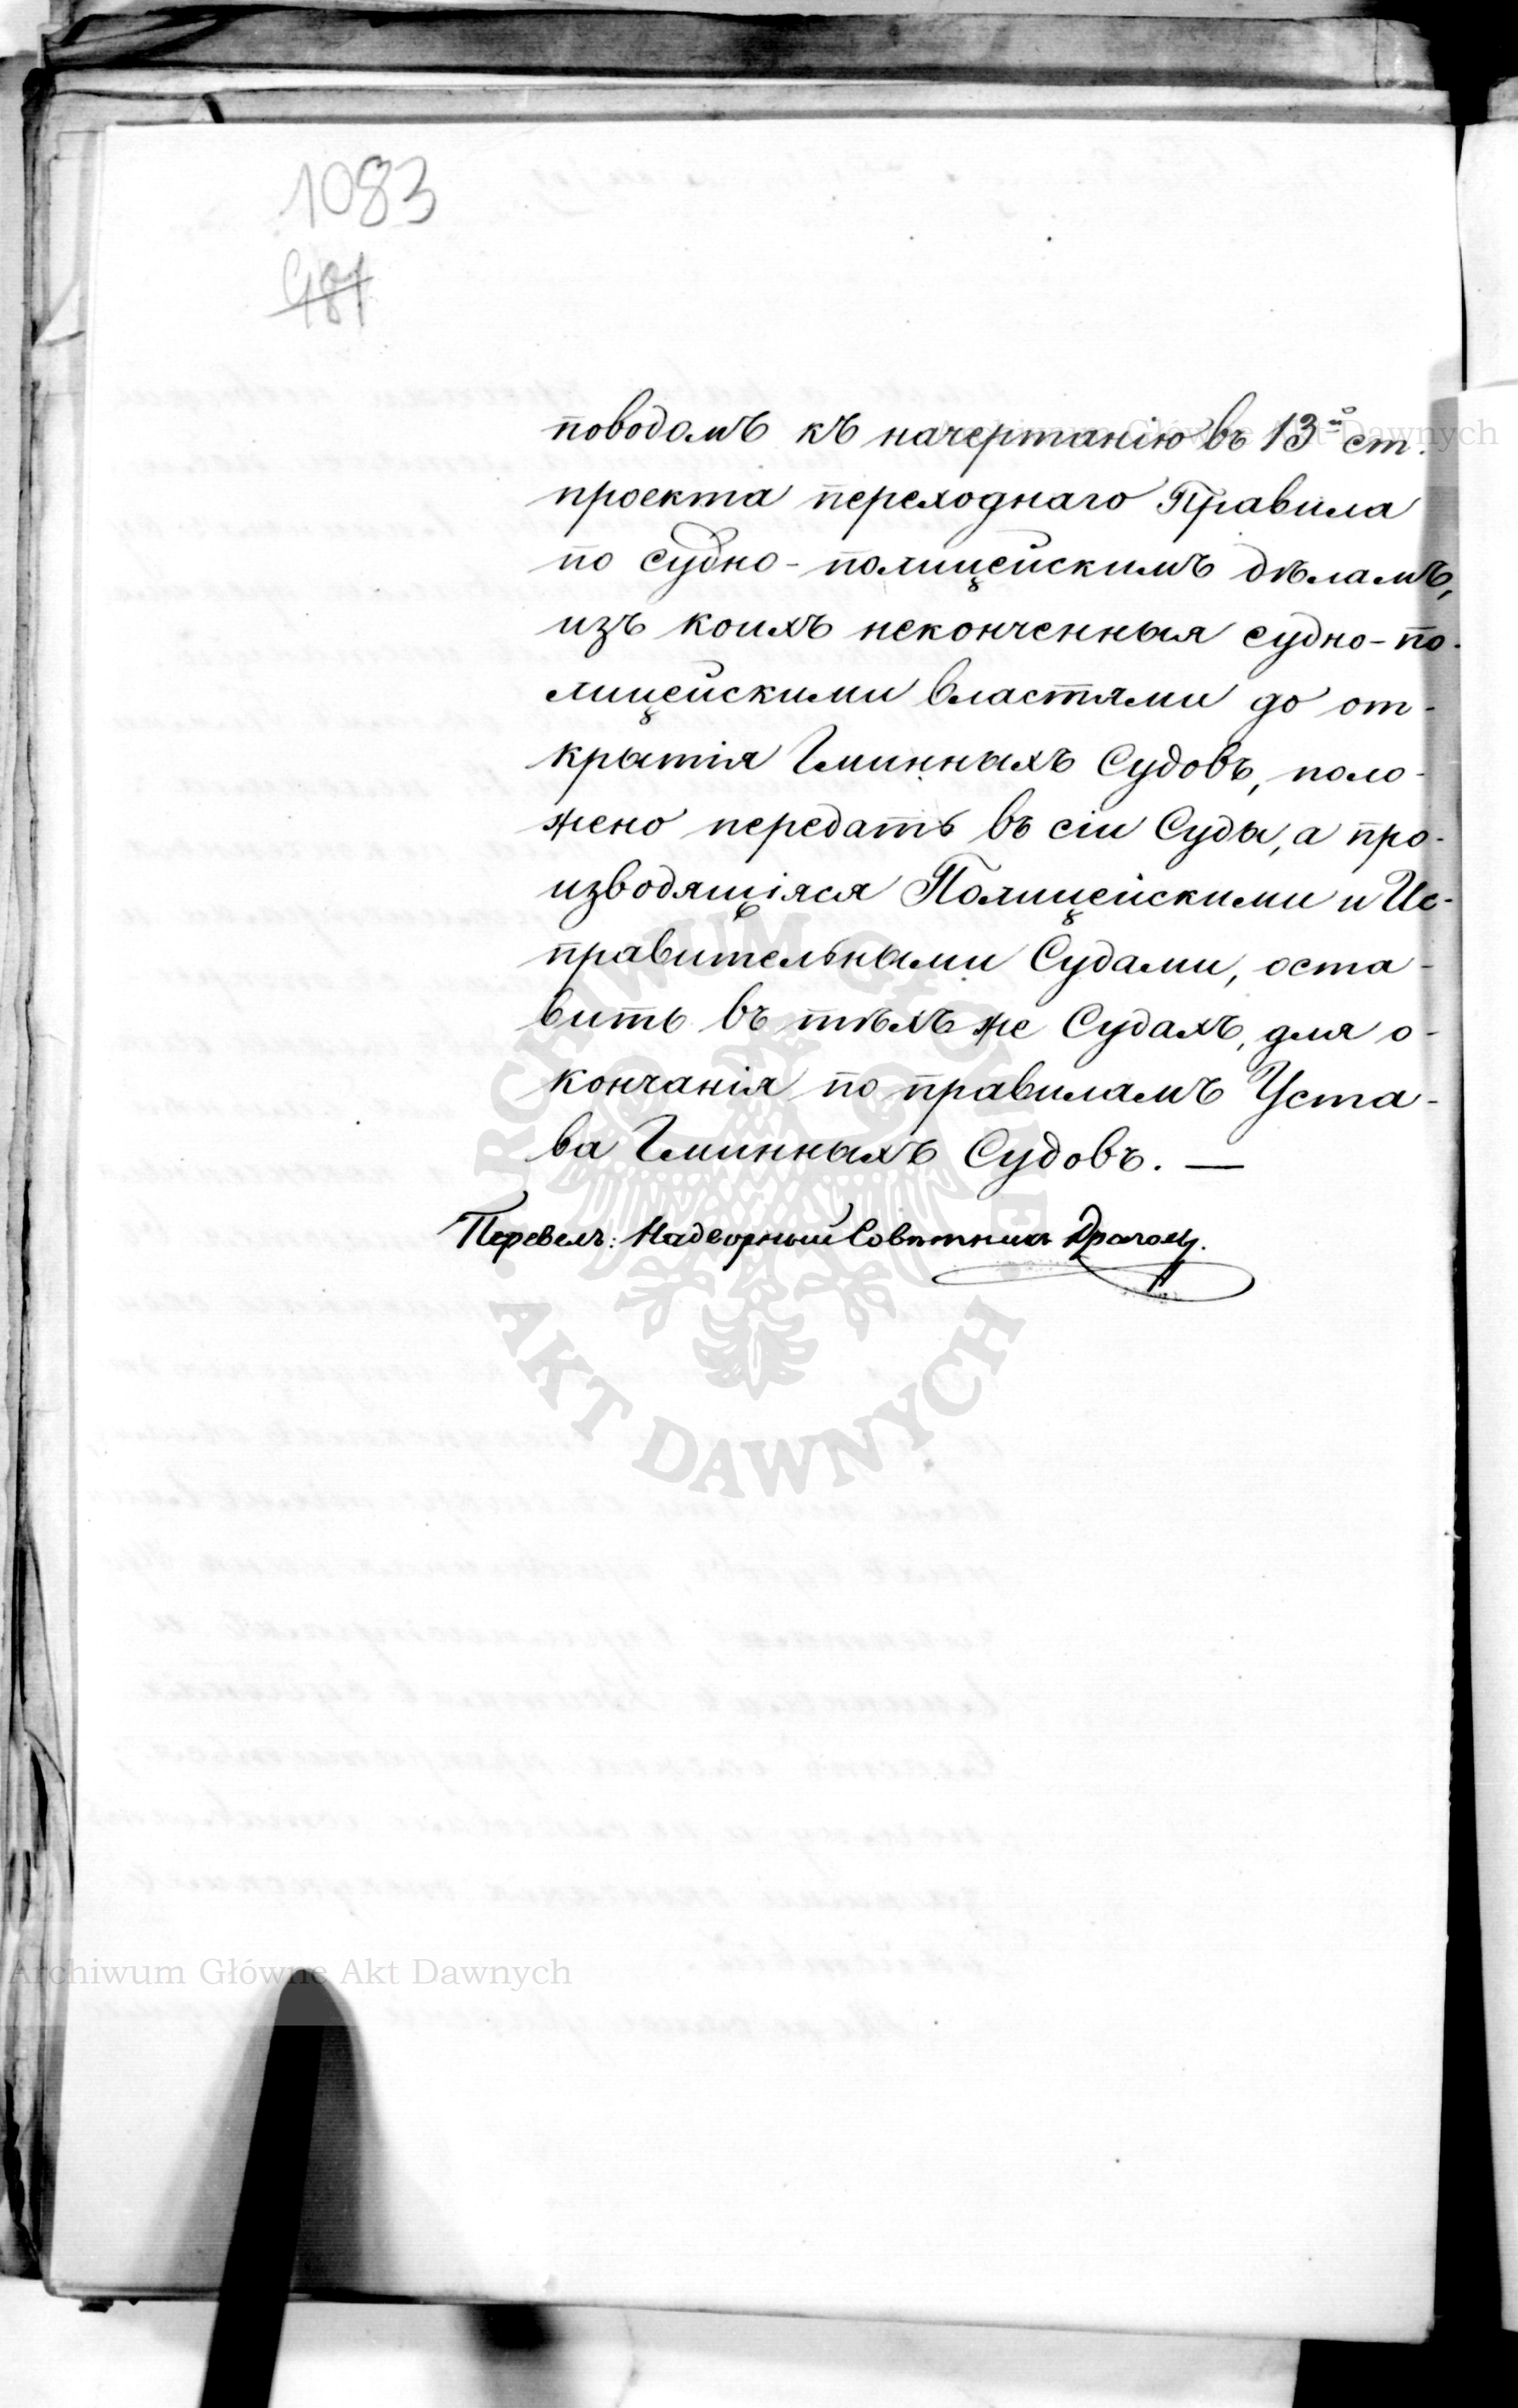 1083
481
поводомъ къ начертанію въ 13й ст.
проекта переходнаго Правила
по судно-полицейскимъ дѣламъ,
изъ коихъ неконченныя судно-по-
лицейскими властями до от-
крытія Гминныхъ Судовъ, поло-
жено передать въ сіи Суды, а про-
изводящіяся Полицейскими и Ис-
правительными Судами, оста-
вить въ тѣхъ же Судахъ, для о-
кончанія по правиламъ Уста-
ва Гминныхъ Судовъ. —
Перевелъ: Надворный Совѣтникъ
ARCHIWUM GŁÓWNE
AKT DAWNYCH
Archiwum Główne Akt Dawnych
Archiwum Główne Akt Dawnych